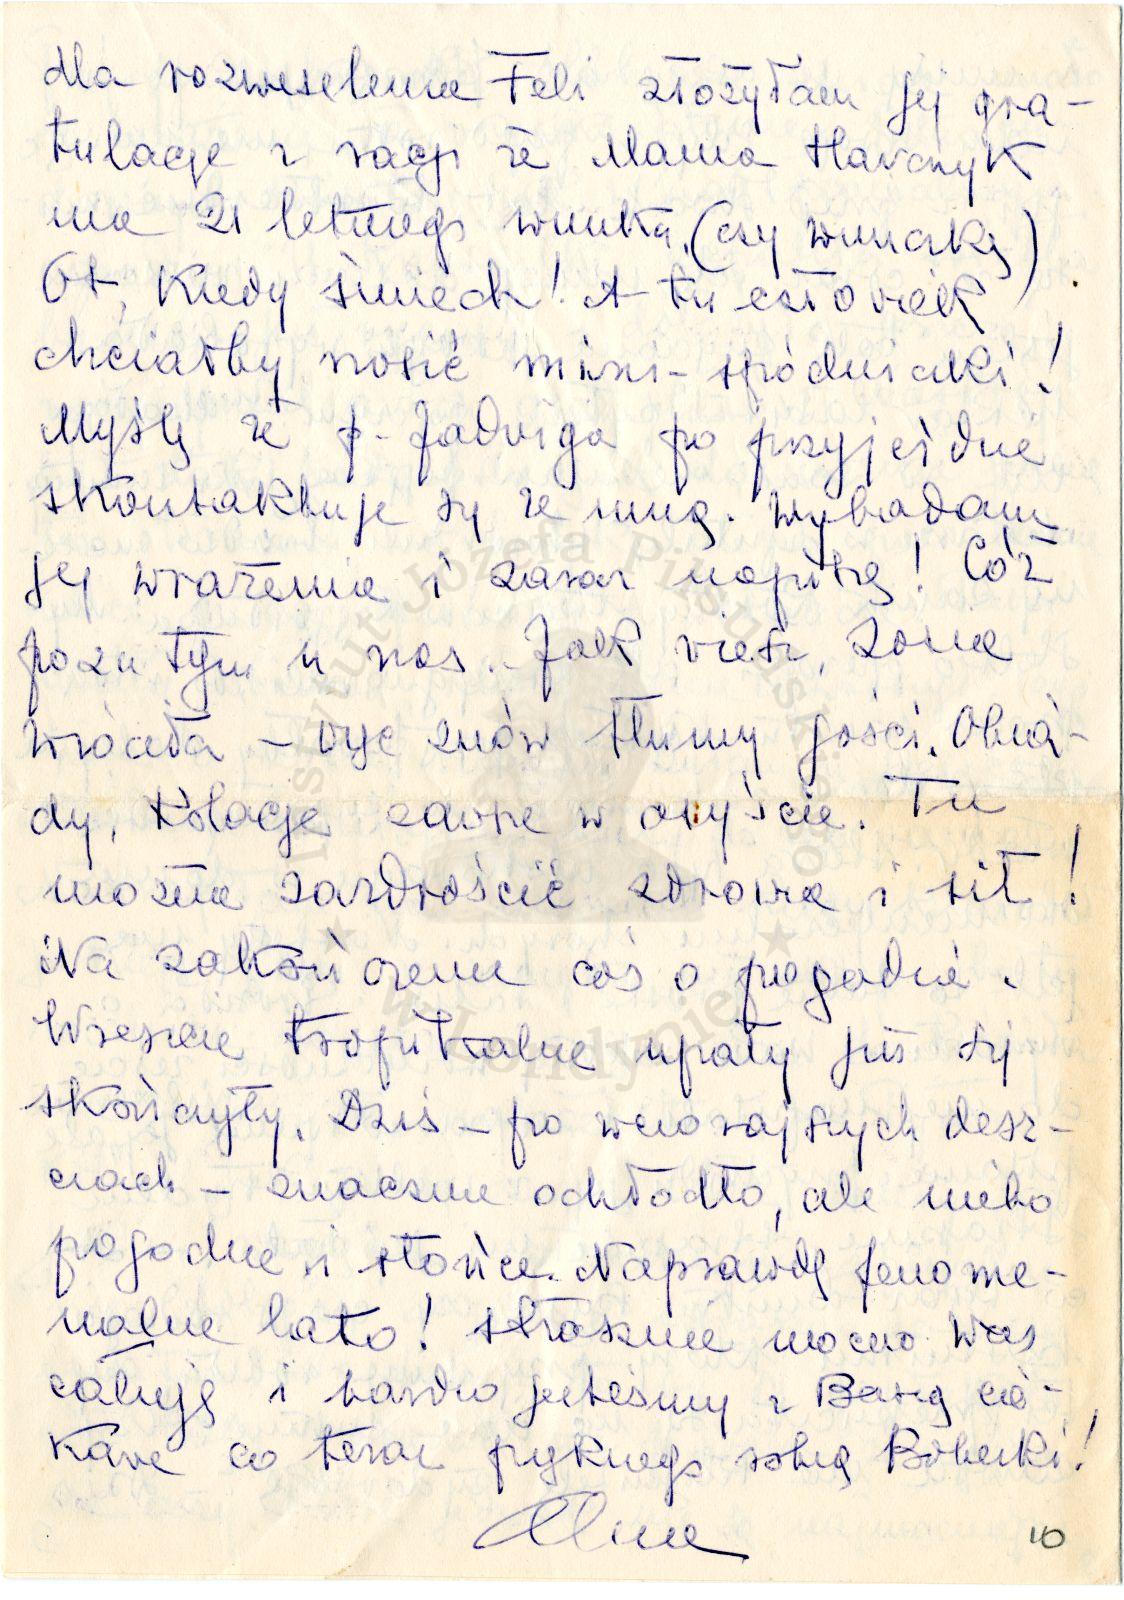 dla rozweselenia Feli złożyłam jej gra-
tulacje z racji że Mama Havczyk
ma 21 letniego wnuka (czy wnuczkę).
Ot, kiedy śmiech! A tu człowiek
chciałby nosić mini-spódniczki!
Myślę że p. Jadwiga po przyjeździe
skontaktuje się ze mną. Wybadam
jej wrażenia i zaraz napiszę! Cóż
poza tym u nas. Jak wiesz,
wróciła - więc znów tłumy gości. Obia-
dy, kolacje zawsze w
można zazdrościć zdrowia i sił!
Na zakończenie coś o pogodzie.
Wreszcie tropikalne upały już się
skończyły. Dziś - po wczorajszych desz-
czach - znacznie ochłodło, ale niebo
pogodne i słońce. Naprawdę fenome-
nalne lato! Strasznie mocno Was
całuję i bardzo jesteśmy z Basią cie-
kawe co teraz pięknego robią Boberki!
Alina
10
Instytut Józefa Piłsudskiego
★ w Londynie ★